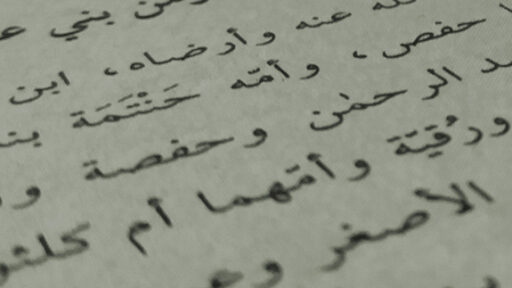 من بني
الله عنه وأرضاه، ابن
حفص، وأمّه حَنْتَمَة
الرحمٰن وحفصة
ورُقيّة وأمّهما أم كلثو
الأصغر